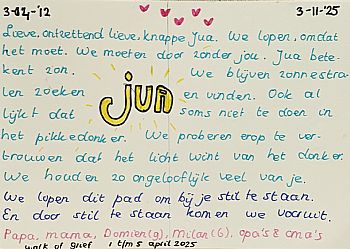 3-04-'12
3-11-'25
Lieve, ontzettend lieve, knappe Jua. We lopen, omdat
het moet. We moeten door zonder jou. Jua bete-
kent zon. We blijven zonnestra-
len zoeken en vinden. Ook al
jua
lijkt dat soms niet te doen in
het pikkedonker. We proberen erop te ver-
trouwen dat het licht wint van het donker.
We houden zo ongelooflijk veel van je.
We lopen dit pad om bij je stil te staan.
En door stil te staan komen we vooruit.
Papa, mama, Domien(9), Milan(6), opa's & oma's
walk of grief 1 t/m 5 april 2025